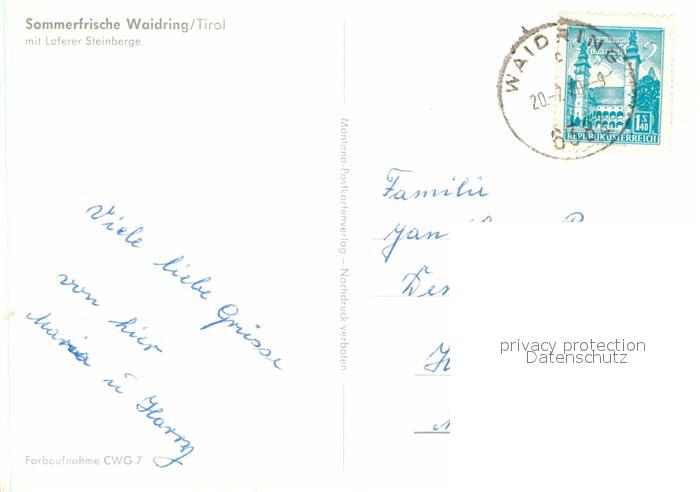 Sommerfrische Waidring/Tirol
mit Loferer Steinberge
Viele liebe Grüsse
von hier
Maria u Harry
Farbaufnahme CWG.7
Montana-Postkartenverlag – Nachdruck verboten
WAIDRING
20.
1.40
S
REPUBLIK ÖSTERREICH
Familie
Jan
Des
privacy protection
Datenschutz